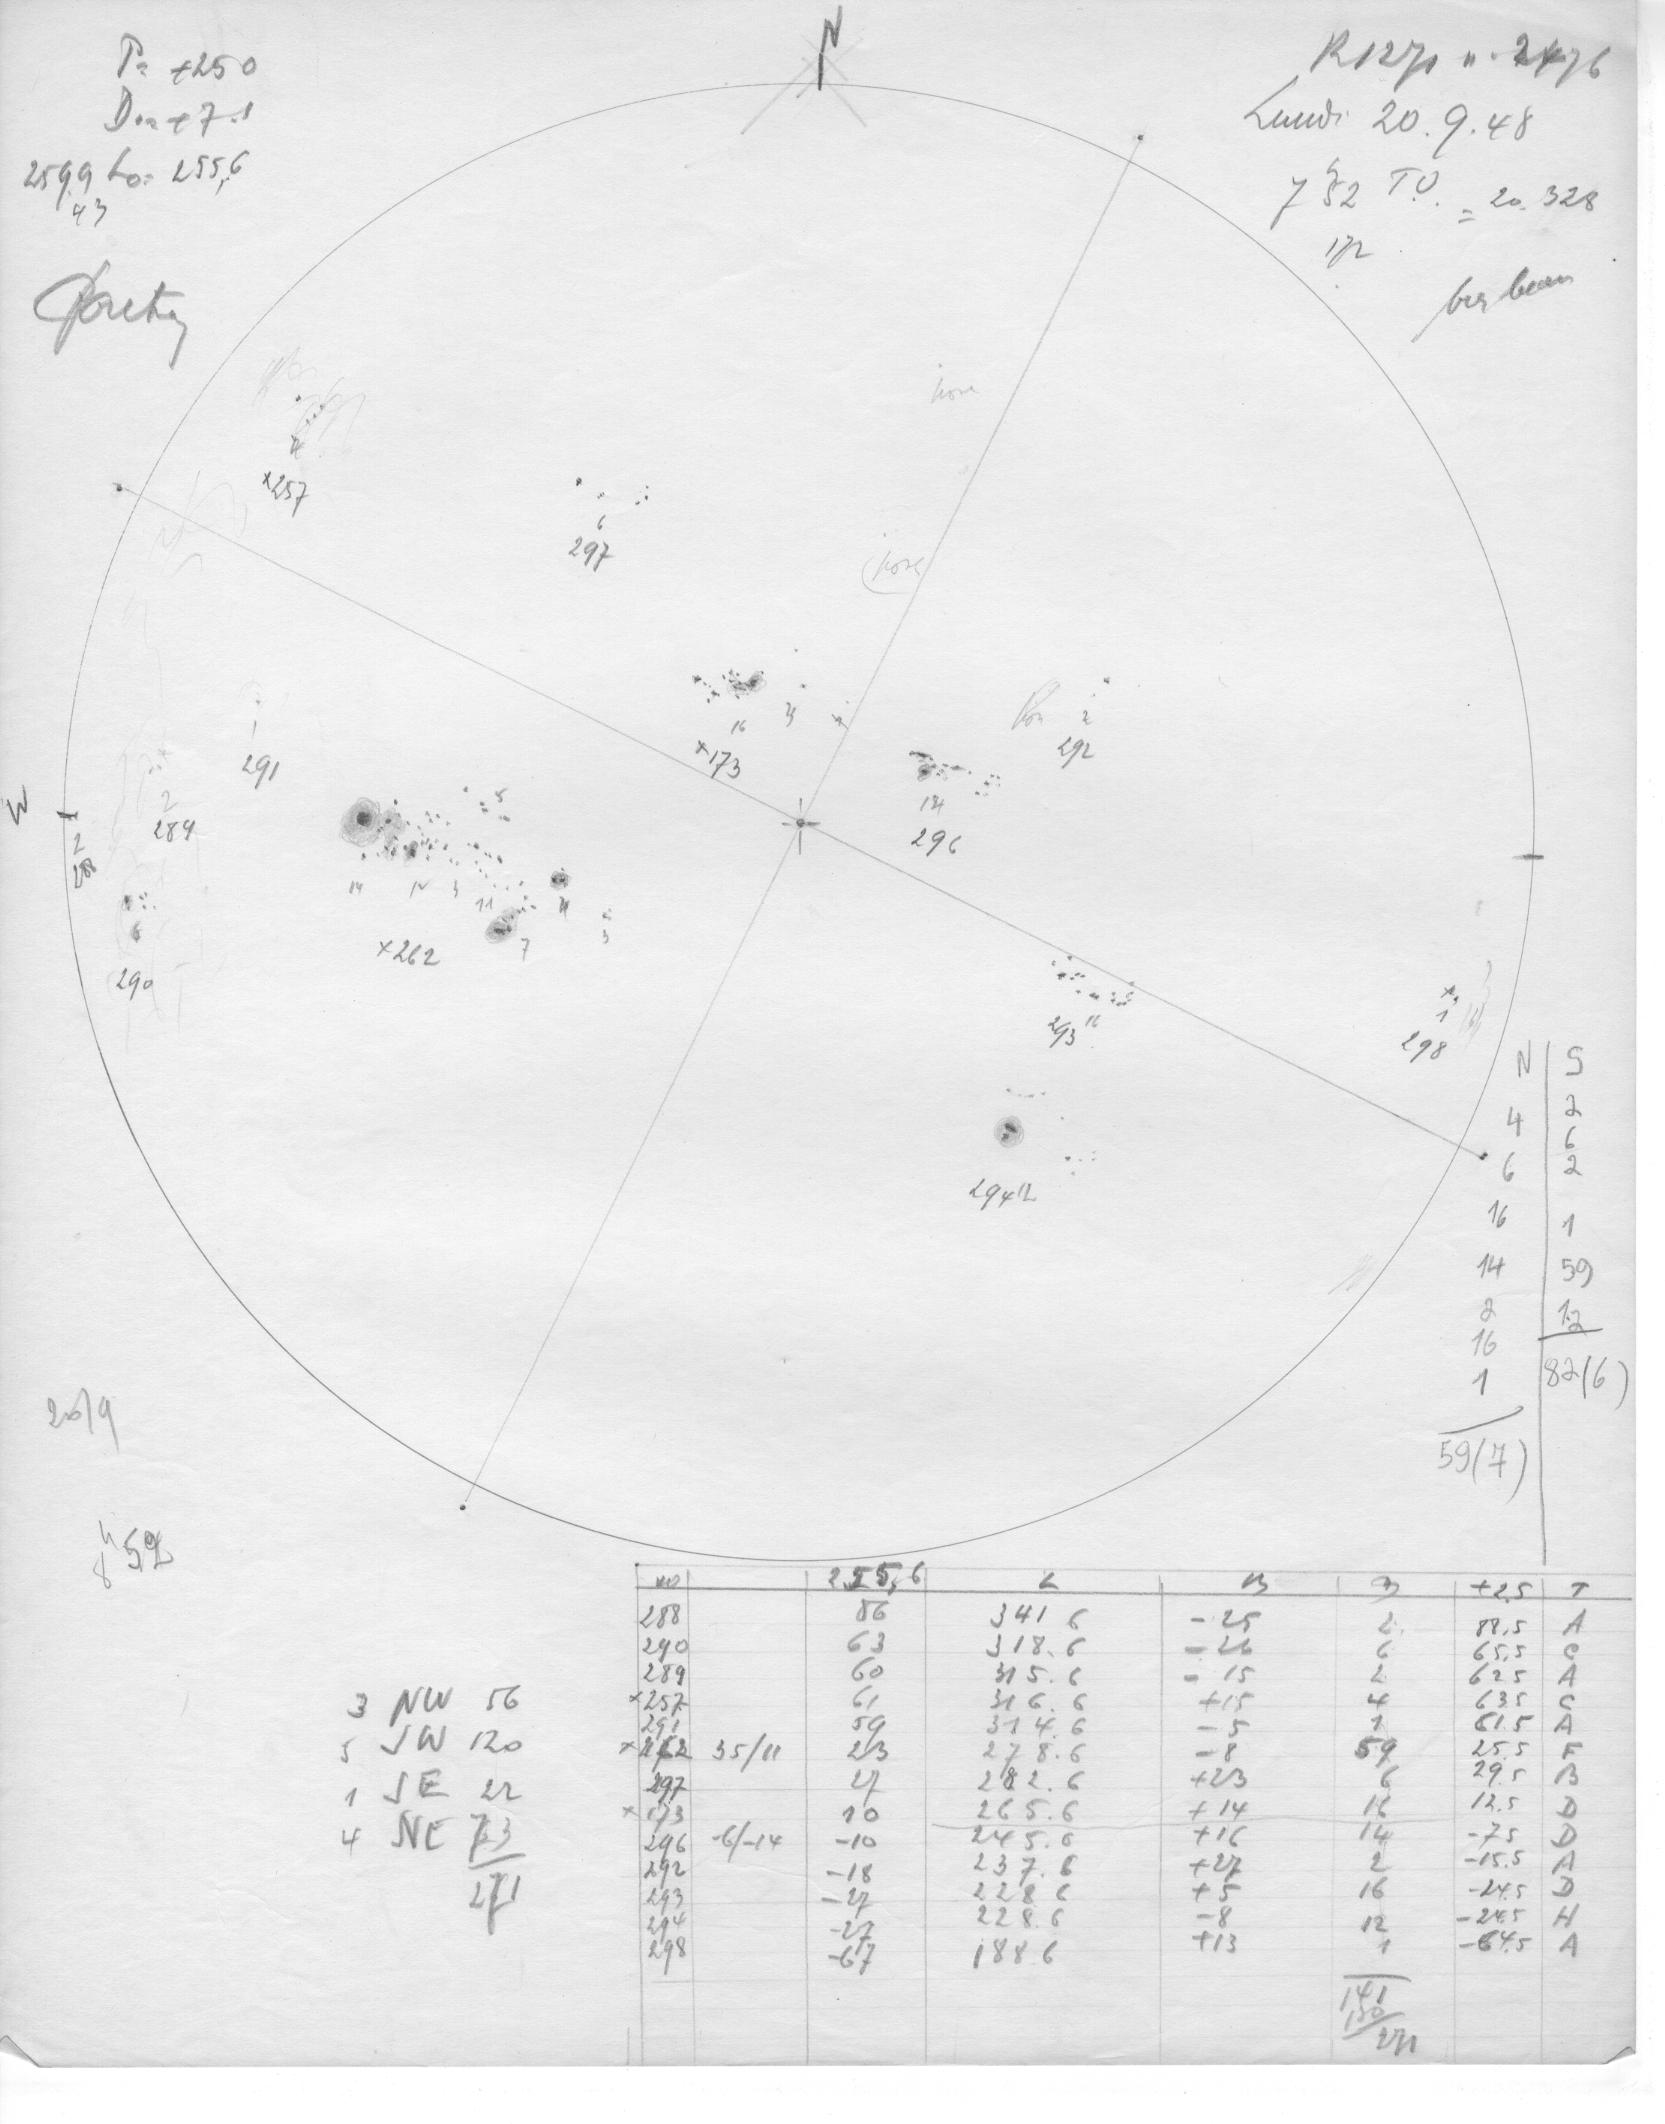 N
P= +25 0
D₀= +7.1
259,9 L₀= 255,6
43
R 271 n. 2476
Lundi 20.9.48
7 h 52 T.U. = 20.328
172
tres beau
4
×257
6
297
pore
(pore)
1
291
2
289
W
2
288
6
290
16
4
×173
2
292
14
296
5
14
12
3
11
4
7
3
×262
293 16
1
298
294 12
N | S
4 2
6 6
16 2
14 1
2 59
16 12
1 82(6)
59(7)
20/9
8h 52
3 NW 56
5 SW 120
1 SE 22
4 NE 73
271
no 255,6 L B +25 T
288 86 341 6 -25 2 88.5 A
290 63 318.6 -26 6 65.5 C
289 60 315.6 -15 2 62 5 A
×257 61 316.6 +15 4 63.5 C
291 59 314.6 -5 1 61.5 A
×262 35/11 23 278.6 -8 59 25.5 F
297 27 282.6 +23 6 29.5 B
×173 10 265.6 +14 16 12.5 D
296 -6/-14 -10 245.6 +16 14 -7 5 D
292 -18 237.6 +27 2 -15.5 A
293 -27 228 6 +5 16 -24.5 D
294 -27 228.6 -8 12 -24.5 H
298 -67 188 6 +13 1 -64.5 A
141
130
271